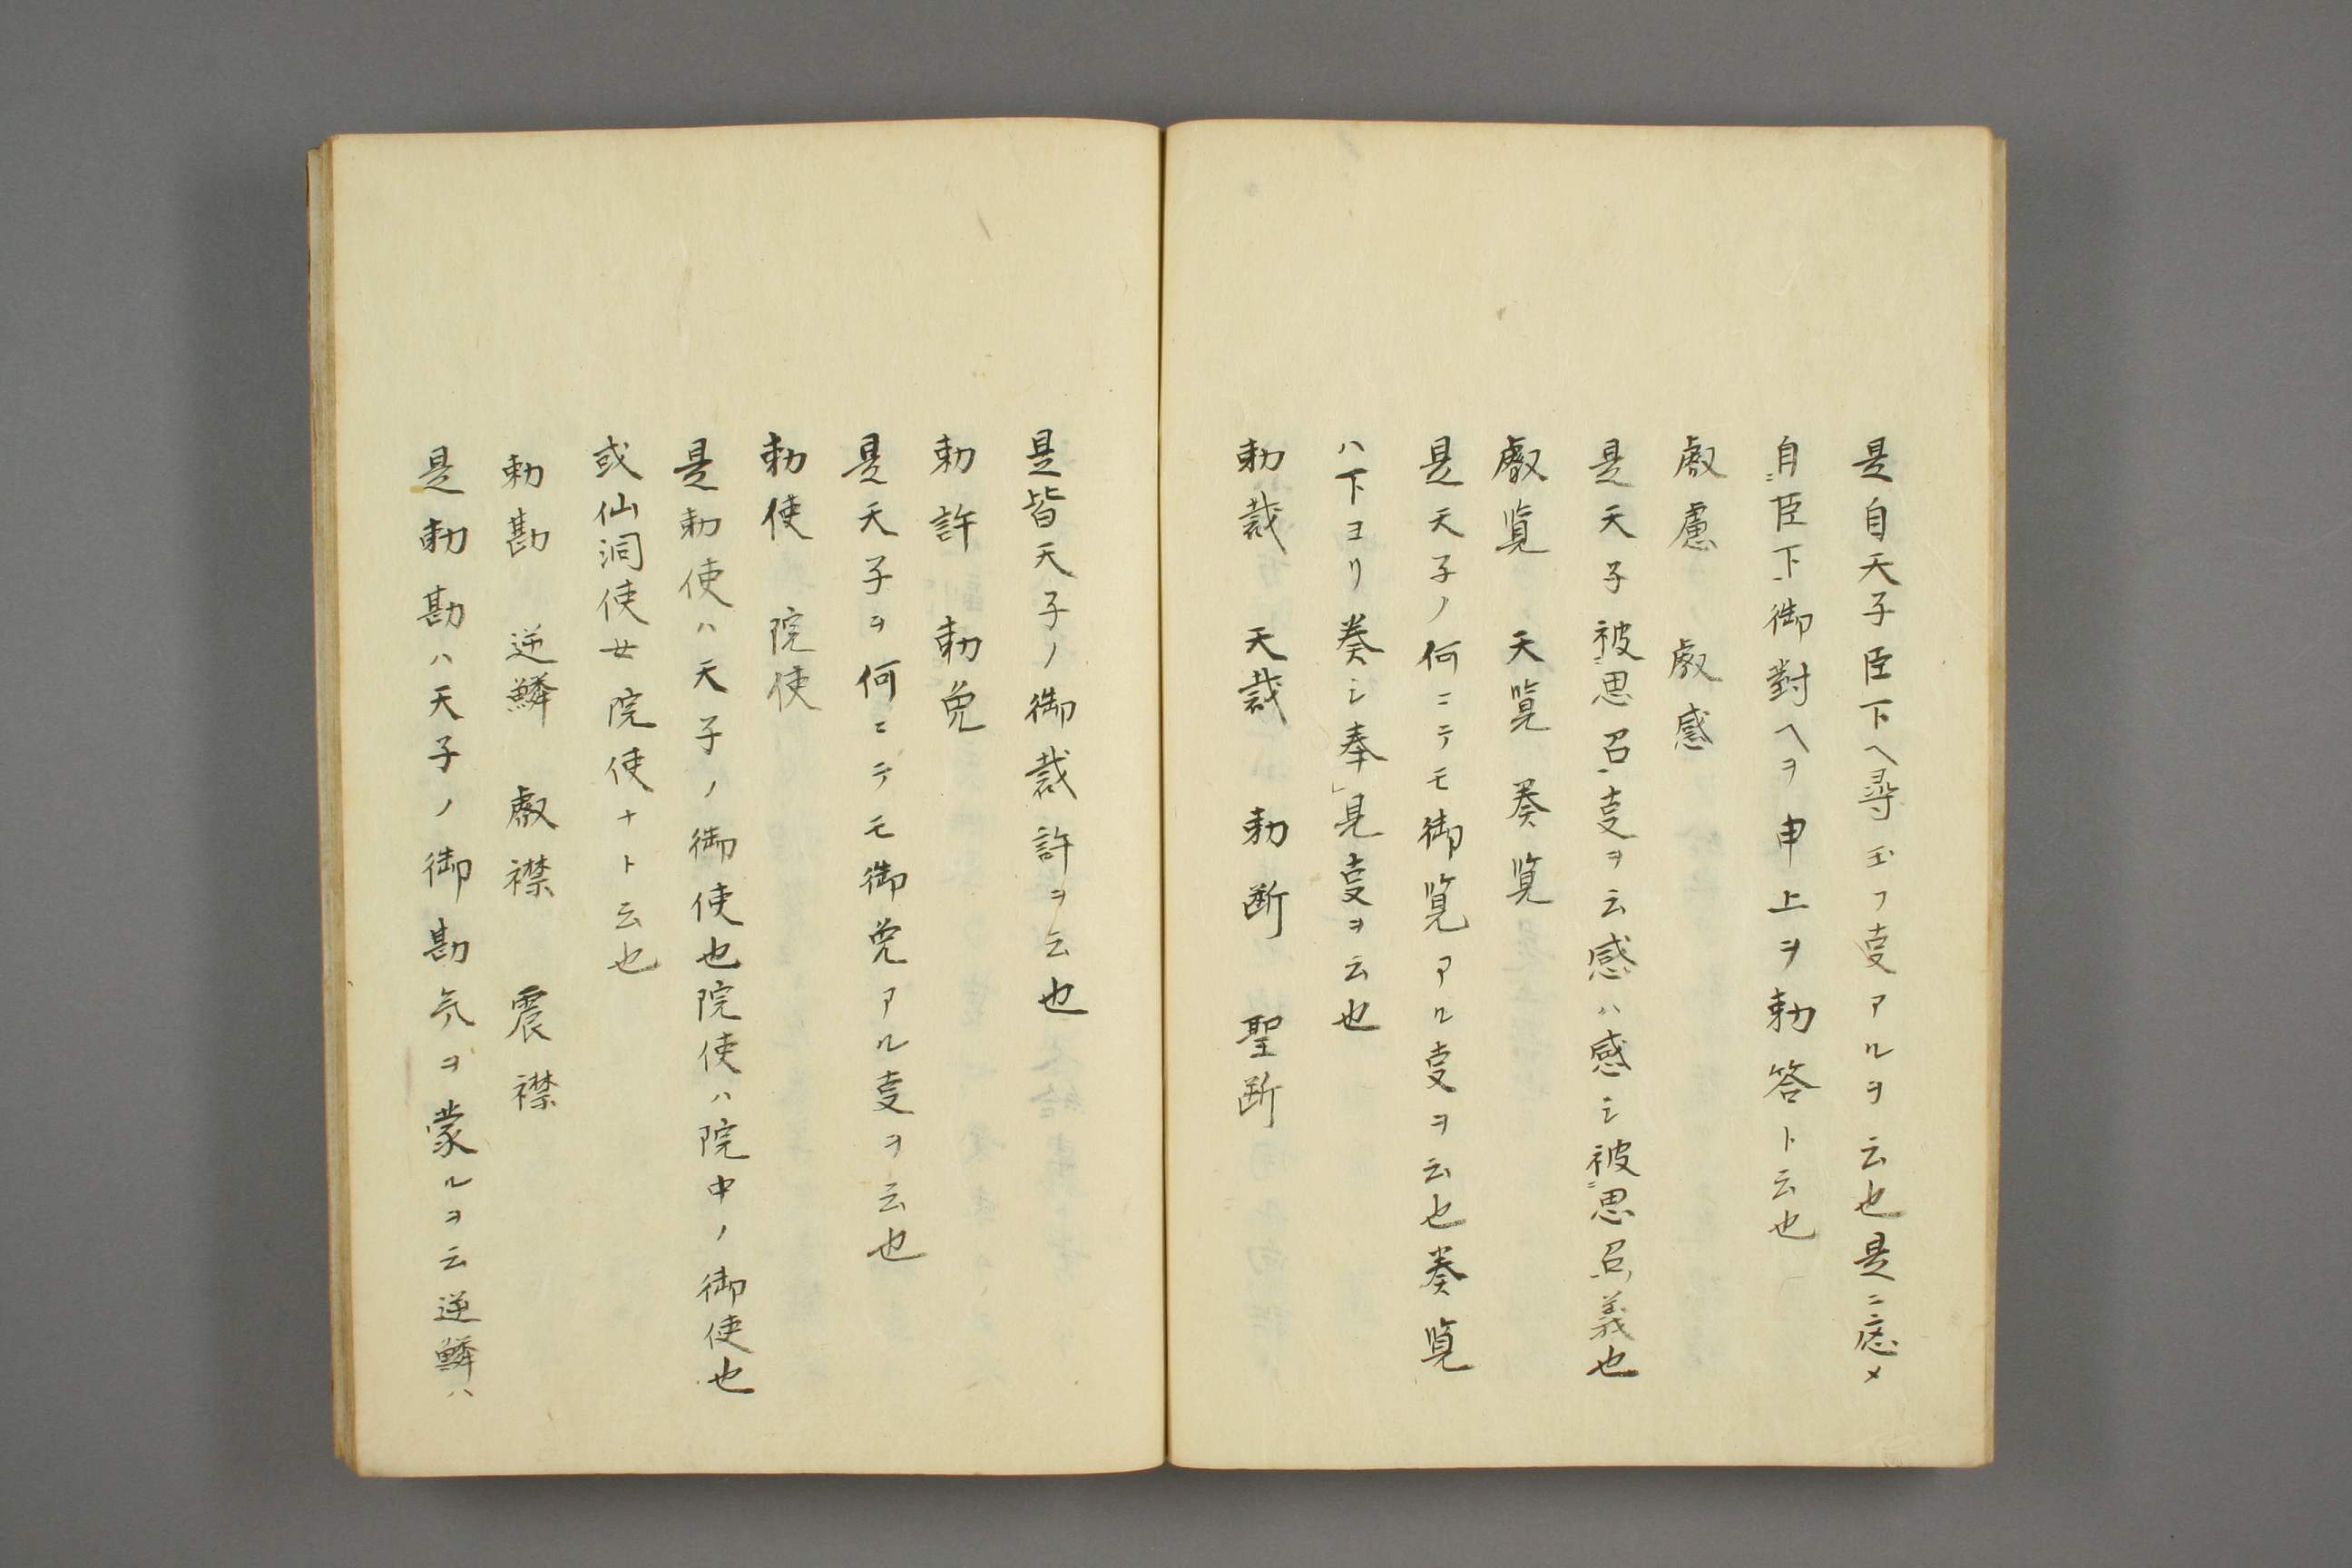 是自天子臣下ヘ尋玉フ叓アルヲ云也是ニ應メ
自臣下御對ヘヲ申上ヲ勅答ト云也
叡慮　叡感
是天子被思召叓ヲ云感ハ感シ被思召義也
叡覧　天覧　奏覧
是天子ノ何ニテモ御覧アル叓ヲ云也奏覧
ハ下ヨリ奏シ奉見叓ヲ云也
勅裁　天裁　勅断　聖断
是皆天子ノ御裁許ヲ云也
勅許　勅免
是天子ヲ何ニテモ御免アル叓ヲ云也
勅使　院使
是勅使ハ天子ノ御使也院使ハ院中ノ御使也
或仙洞使女院使ナト云也
勅勘　逆鱗　叡襟　震襟
是勅勘ハ天子ノ御勘気ヲ蒙ルヲ云逆鱗ハ